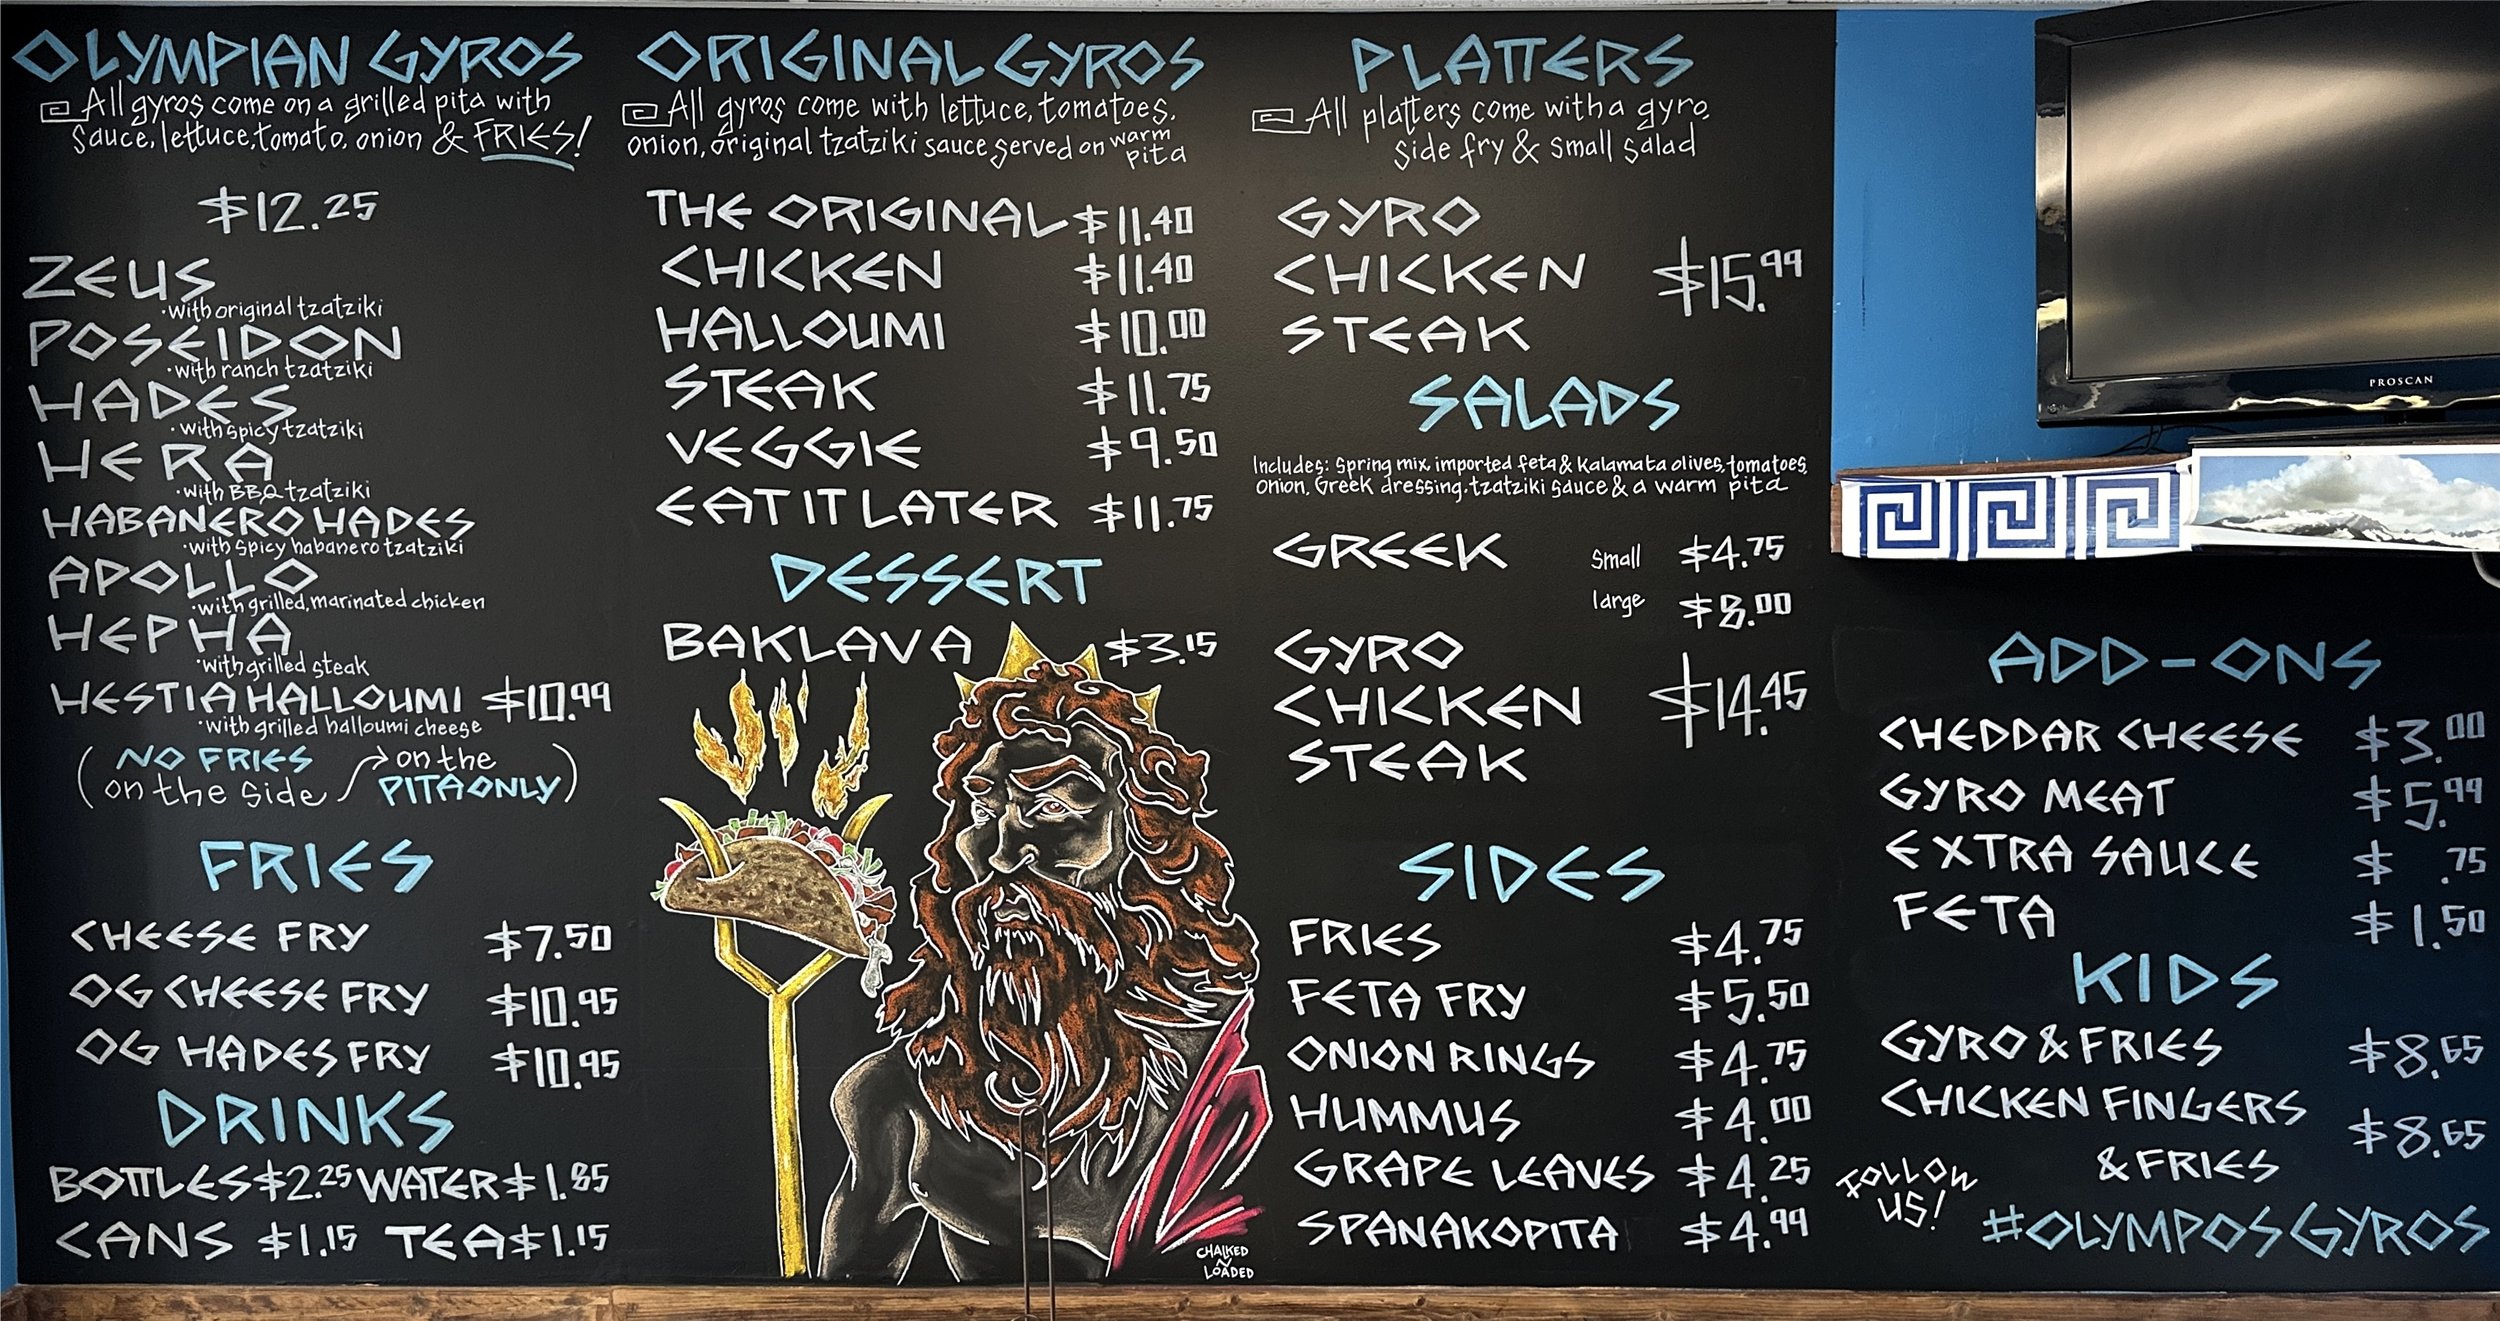 OLYMPIAN GYROS
All gyros come on a grilled pita with
sauce, lettuce, tomato, onion & FRIES!
$12.25
ZEUS
·with original tzatziki
POSEIDON
·with ranch tzatziki
HADES
·with spicy tzatziki
HERA
·with BBQ tzatziki
HABANERO HADES
·with spicy habanero tzatziki
APOLLO
·with grilled, marinated chicken
HEPHA
·with grilled steak
HESTIA HALLOUMI $10.99
·with grilled halloumi cheese
(NO FRIES on the side → on the PITA ONLY)
FRIES
CHEESE FRY $7.50
OG CHEESE FRY $10.95
OG HADES FRY $10.95
DRINKS
BOTTLES $2.25 WATER $1.85
CANS $1.15 TEA $1.15
ORIGINAL GYROS
All gyros come with lettuce, tomatoes,
onion, original tzatziki sauce served on warm
pita
THE ORIGINAL $11.40
CHICKEN $11.40
HALLOUMI $10.00
STEAK $11.75
VEGGIE $9.50
EAT IT LATER $11.75
DESSERT
BAKLAVA $3.15
CHALKED
N
LOADED
PLATTERS
All platters come with a gyro,
side fry & small salad
GYRO
CHICKEN $15.99
STEAK
SALADS
Includes: Spring mix, imported feta & Kalamata olives, tomatoes,
onion, Greek dressing, tzatziki sauce & a warm pita
GREEK small $4.75
large $8.00
GYRO
CHICKEN $14.45
STEAK
SIDES
FRIES $4.75
FETA FRY $5.50
ONION RINGS $4.75
HUMMUS $4.00
GRAPE LEAVES $4.25
SPANAKOPITA $4.99
PROSCAN
ADD-ONS
CHEDDAR CHEESE $3.00
GYRO MEAT $5.99
EXTRA SAUCE $ .75
FETA $1.50
KIDS
GYRO & FRIES $8.65
CHICKEN FINGERS $8.65
& FRIES
FOLLOW
US!
#OLYMPOSGYROS